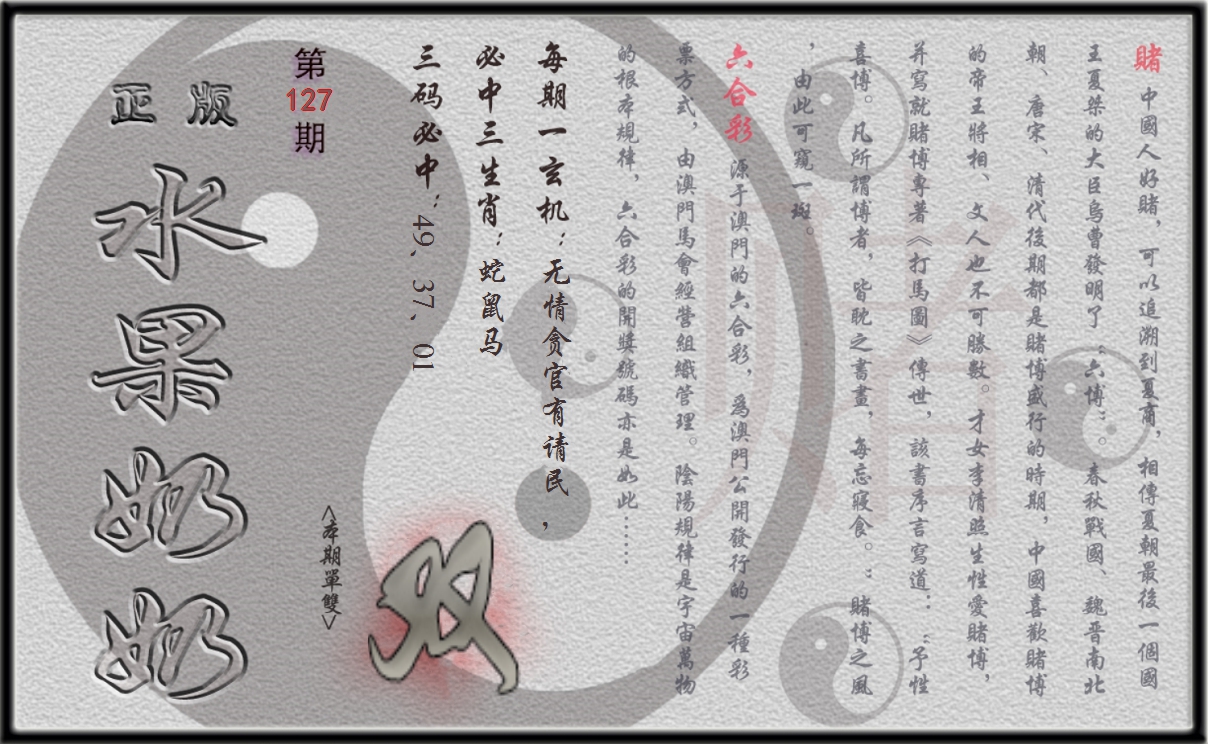 賭 中國人好賭，可以追溯到夏商，相傳夏朝最後一個國
王夏桀的大臣烏曹發明了“六博”。春秋戰國、魏晋南北
朝、唐宋、清代後期都是賭博盛行的時期，中國喜歡賭博
的帝王將相、文人也不可勝數。才女李清照生性愛賭博，
并寫就賭博專著《打馬圖》傳世，該書序言寫道：“予性
喜博。凡所謂博者，皆眈之書畫，每忘寢食。：賭博之風
，由此可窺一斑。
六合彩 源于澳門的六合彩，爲澳門公開發行的一種彩
票方式，由澳門馬會經營組織管理。陰陽規律是宇宙萬物
的根本規律，六合彩的開獎號碼亦是如此……
每期一玄机：无情贪官有请民，
必中三生肖：蛇鼠马
三码必中：49、37、01
双
<本期單雙>
第
127
期
正版
水果奶奶